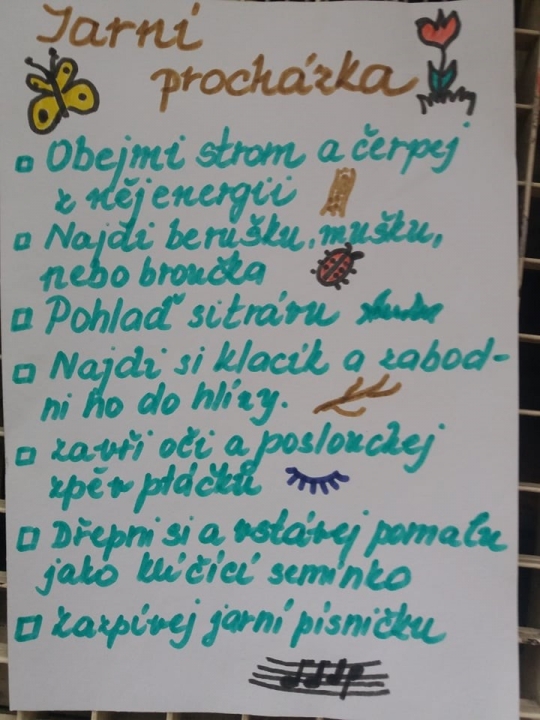 Jarní
procházka
Obejmi strom a čerpej
z něj energii
Najdi berušku, mušku,
nebo broučka
Pohlaď si trávu
Najdi si klacík a zabod-
ni ho do hlízy.
zavři oči a poslouchej
zpěv ptáčků
Dřepni si a vstávej pomalu
jako klíčící semínko
Zazpívej jarní písničku